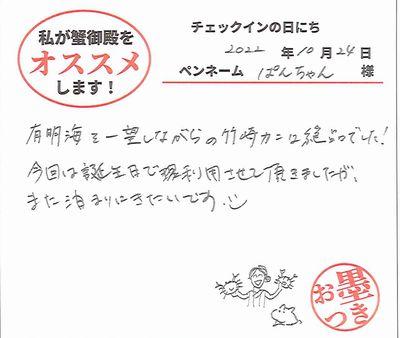 私が蟹御殿を
オススメ
します!
チェックインの日にち
2022年10月24日
ペンネーム ぱんちゃん 様
有明海を一望しながらの竹崎カニは絶品でした!
今回は誕生日で利用させて頂きましたが、
また泊まりにきたいです。
墨
おつき